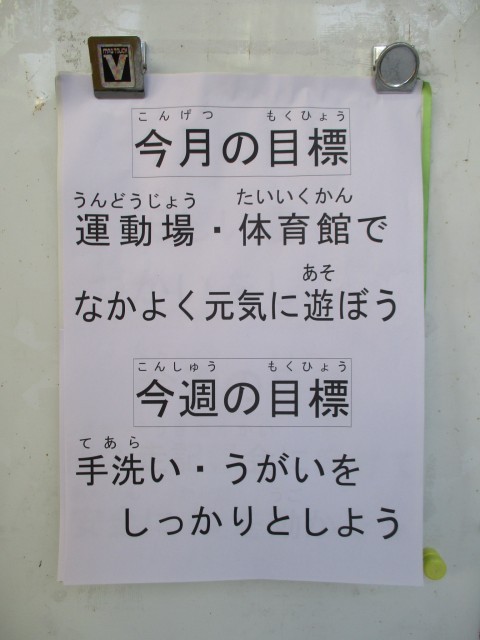 こんげつ　もくひょう
今月の目標
うんどうじょう　たいいくかん
運動場・体育館で
あそ
なかよく元気に遊ぼう
こんしゅう　もくひょう
今週の目標
てあら
手洗い・うがいを
しっかりとしよう